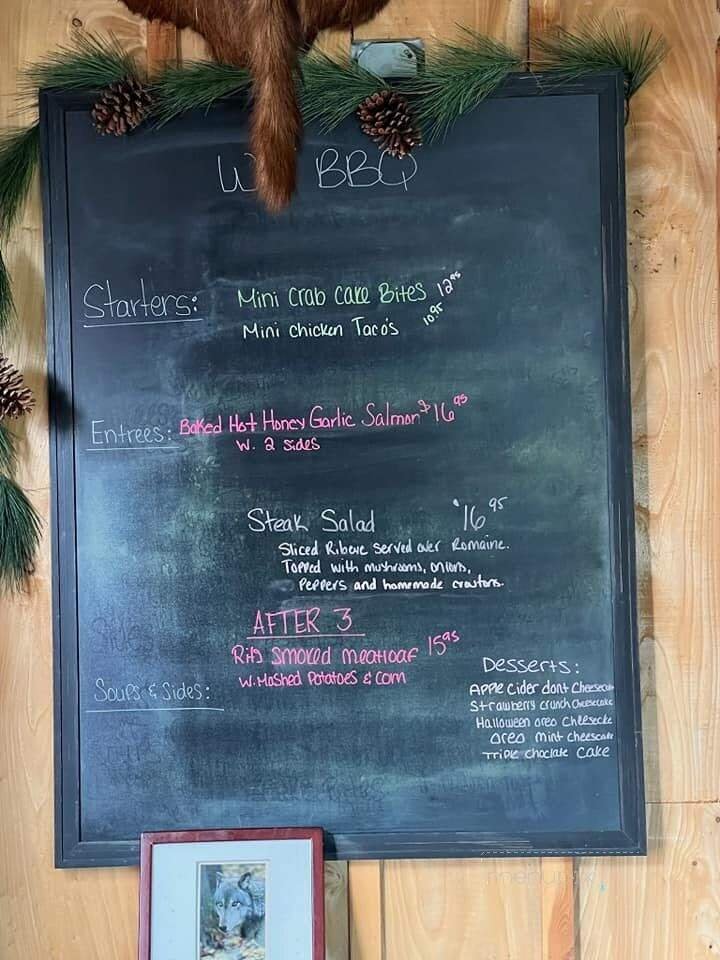 W BBQ
Starters:
Mini Crab Cake Bites 12.95
Mini Chicken Taco's 10.95
Entrees:
Baked Hot Honey Garlic Salmon $16.95
W. 2 sides
Steak Salad $16.95
Sliced Ribeye served over Romaine.
Topped with mushrooms, onions,
Peppers and homemade croutons.
AFTER 3
smoked meatloaf 15.95
W. Mashed Potatoes & corn
Soups & Sides:
Desserts:
Apple Cider dont Cheesecake
Strawberry crunch Cheesecake
Halloween oreo Cheesecke
oreo mint cheescake
Triple choclate cake